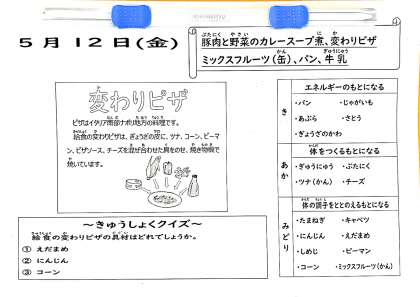 5月12日(金)
豚肉と野菜のカレースープ煮、変わりピザ
ミックスフルーツ(缶)、パン、牛乳
変わりピザ
ピザはイタリア南部ナポリ地方の料理です。
給食の変わりピザは、ぎょうざの皮に、ツナ、コーン、ピーマ
ン、ピザソース、チーズを混ぜ合わせた具をのせ、焼き物機で
焼いています。
～きゅうしょくクイズ～
給食の変わりピザの具材はどれでしょうか。
① えだまめ
② にんじん
③ コーン
き
エネルギーのもとになる
・パン ・じゃがいも
・あぶら ・さとう
・ぎょうざのかわ
あか
体をつくるもとになる
・ぎゅうにゅう ・ぶたにく
・ツナ(かん) ・チーズ
みどり
体の調子をととのえるもとになる
・たまねぎ ・キャベツ
・にんじん ・えだまめ
・しめじ ・ピーマン
・コーン ・ミックスフルーツ(かん)